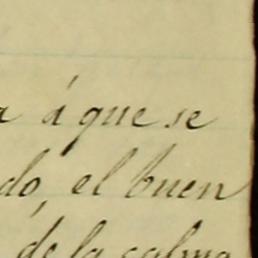 a á que se
do, el buen
de la calma